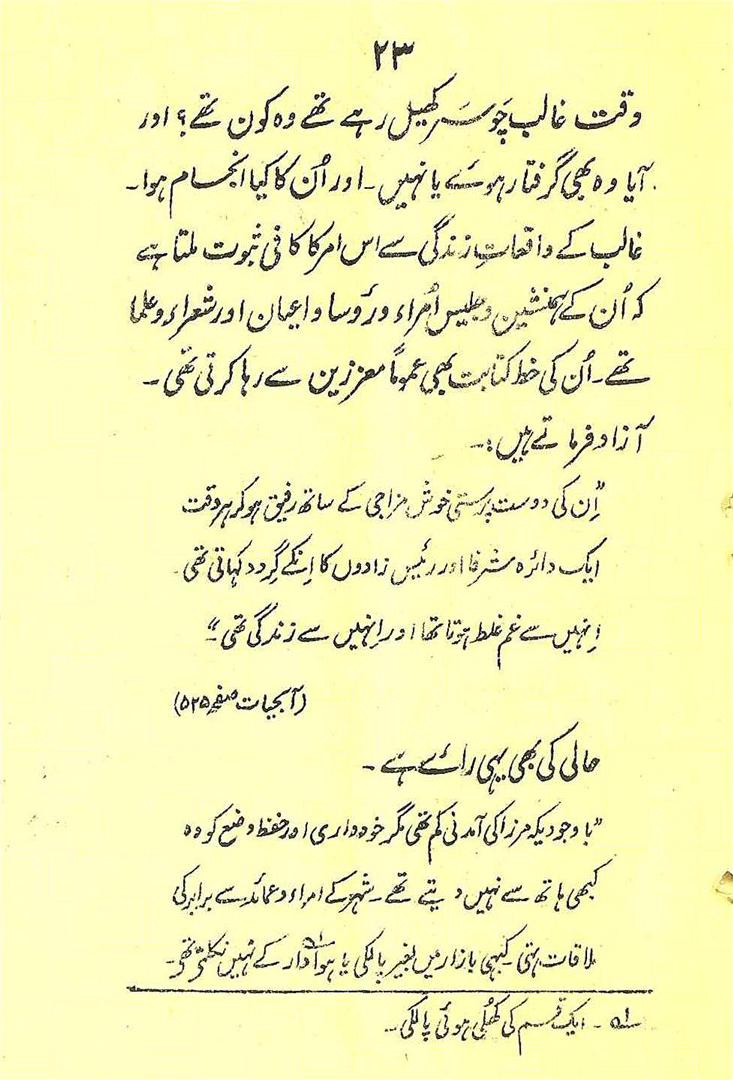 ۲۳
وقت غالب چَوسَر کھیل رہے تھے وہ کون تھے؟ اور
آیا وہ بھی گرفتار ہوئے یا نہیں ۔ اور اُن کا کیا انجام ہوا ۔
غالب کے واقعاتِ زندگی سے اس امر کا کافی ثبوت ملتا ہے
کہ اُن کے ہمنشین و جلیس اُمراء و رؤسا و اعیان اور شعراء و علما
تھے ۔ اُن کی خط کتابت بھی عموماً معززین سے رہا کرتی تھی ۔
آزاد فرماتے ہیں :۔
”اِن کی دوست پرستی خوش مزاجی کے ساتھ رفیق ہو کر ہر وقت
ایک دائرہ شرفا اور رئیس زادوں کا اِنکے گِرد دکہاتی تھی ۔
اِنہیں سے غم غلط ہوتا تھا اور اِنہیں سے زندگی تھی ۔“
(آبحیات صفحہ ۵۲۵)
حالی کی بھی یہی رائے ہے ۔
”باوجودیکہ مرزا کی آمدنی کم تھی مگر خودداری اور حفظ وضع کو وہ
کبھی ہاتھ سے نہیں دیتے تھے ۔ شہر کے امراء و عمائد سے برابر کی
ملاقات تہی ۔ کبہی بازار میں بغیر پالکی یا ہوادار ؎۱ کے نہیں نکلتے تھے ۔
؎۱ ۔ ایک قسم کی کھُلی ہوئی پالکی ۔